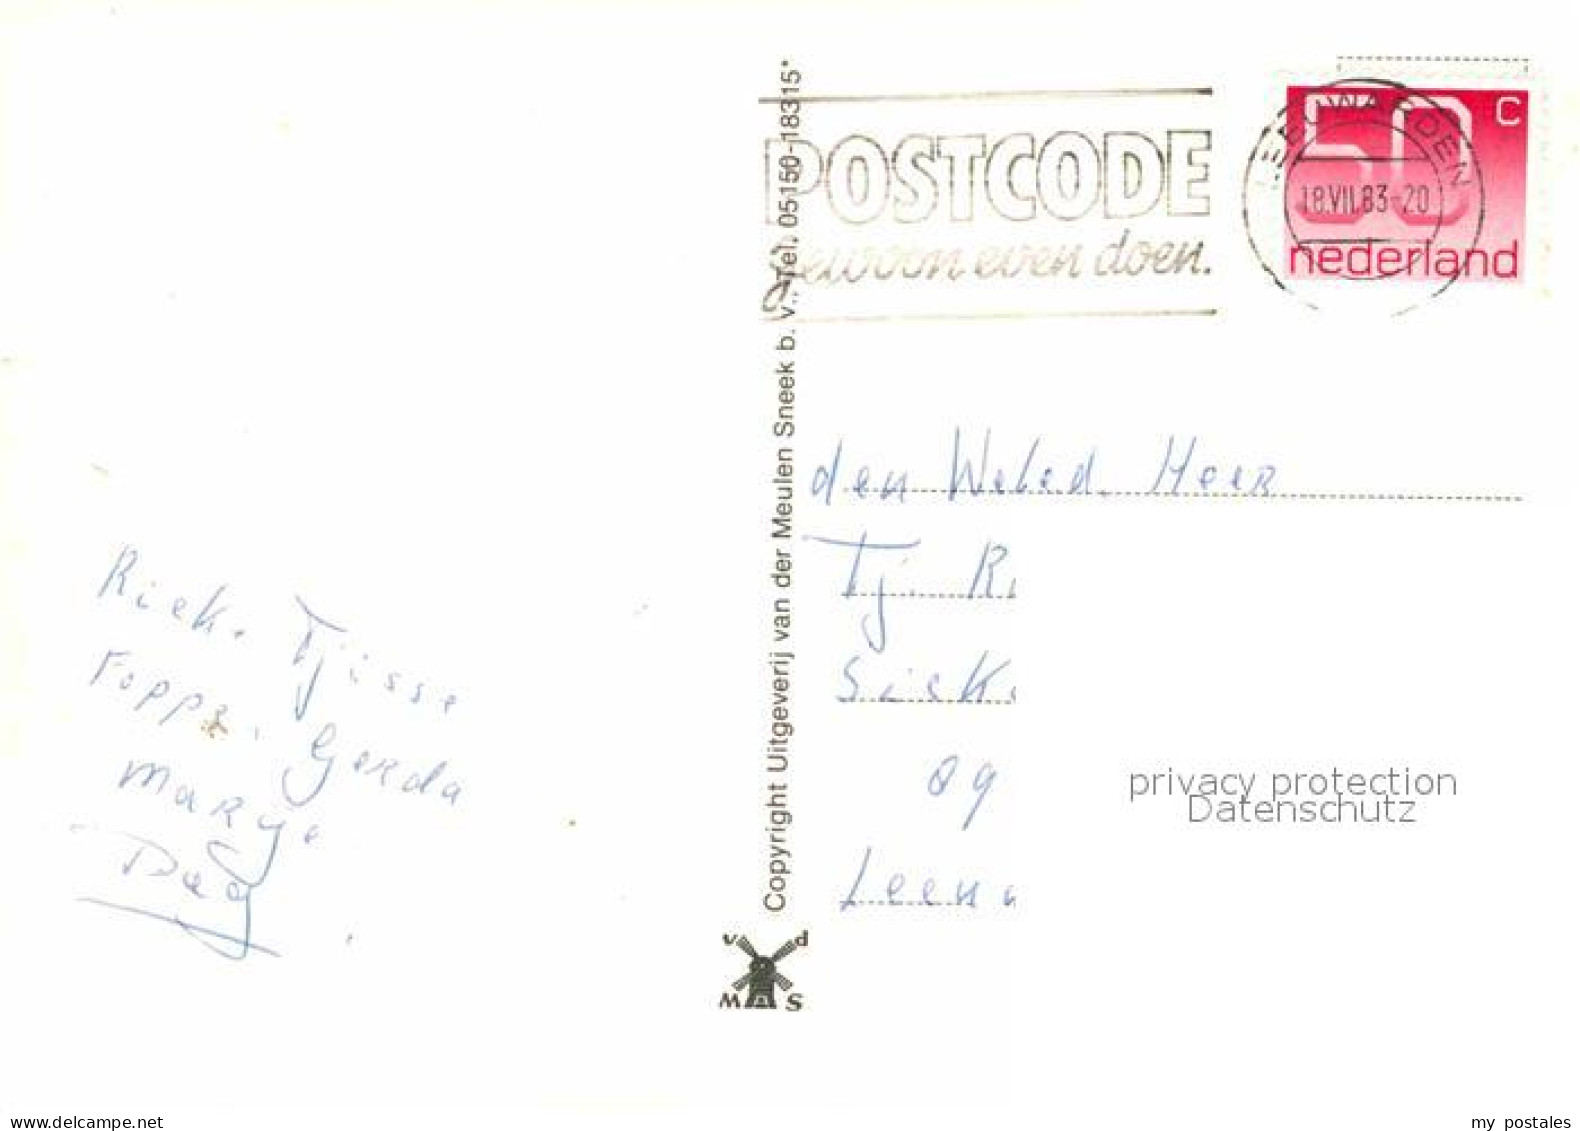 Riek. Tjisse
Foppe. Gerda
Marge
Dag
Copyright Uitgeverij van der Meulen Sneek b. v. Tel. 05150-18315*
v d
M S
POSTCODE
gewoon even doen.
LEEUWARDEN
18.VII.83-20
50 c
nederland
den Weled. Heer
Tj. R
Siek
89
Leeu
privacy protection
Datenschutz
www.delcampe.net
my postales